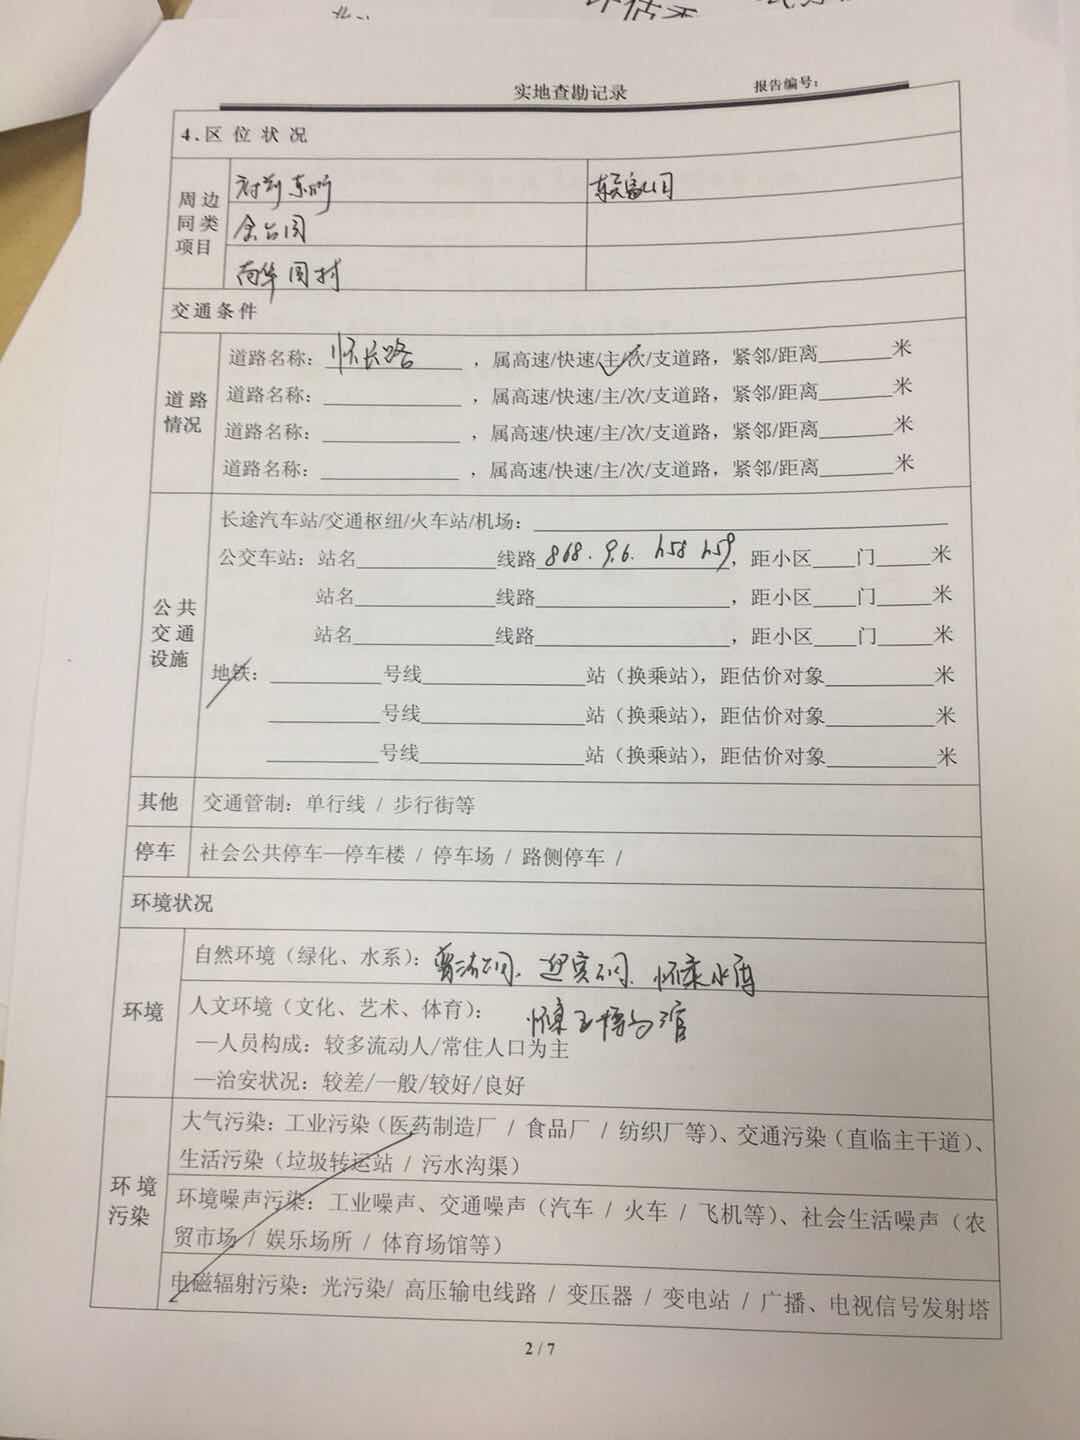 实地查勘记录
报告编号:
4.区位状况
周边同类项目
金台园
南华园村
交通条件
道路情况
道路名称: 怀长路 , 属高速/快速/主/次/支道路, 紧邻/距离______米
道路名称: ______ , 属高速/快速/主/次/支道路, 紧邻/距离______米
道路名称: ______ , 属高速/快速/主/次/支道路, 紧邻/距离______米
道路名称: ______ , 属高速/快速/主/次/支道路, 紧邻/距离______米
公共交通设施
长途汽车站/交通枢纽/火车站/机场: ______
公交车站: 站名______线路 868. 96. h58 h59, 距小区____门____米
站名______线路______, 距小区____门____米
站名______线路______, 距小区____门____米
地铁: ______号线______站（换乘站), 距估价对象______米
______号线______站（换乘站), 距估价对象______米
______号线______站（换乘站), 距估价对象______米
其他 交通管制: 单行线 / 步行街等
停车 社会公共停车—停车楼 / 停车场 / 路侧停车 /
环境状况
环境
自然环境（绿化、水系）: 怀柔水库
人文环境（文化、艺术、体育）: 怀柔博物馆
—人员构成: 较多流动人/常住人口为主
—治安状况: 较差/一般/较好/良好
环境污染
大气污染: 工业污染（医药制造厂 / 食品厂 / 纺织厂等）、交通污染（直临主干道）、
生活污染（垃圾转运站 / 污水沟渠）
环境噪声污染: 工业噪声、交通噪声（汽车 / 火车 / 飞机等）、社会生活噪声（农
贸市场 / 娱乐场所 / 体育场馆等）
电磁辐射污染: 光污染/ 高压输电线路 / 变压器 / 变电站 / 广播、电视信号发射塔
2 / 7